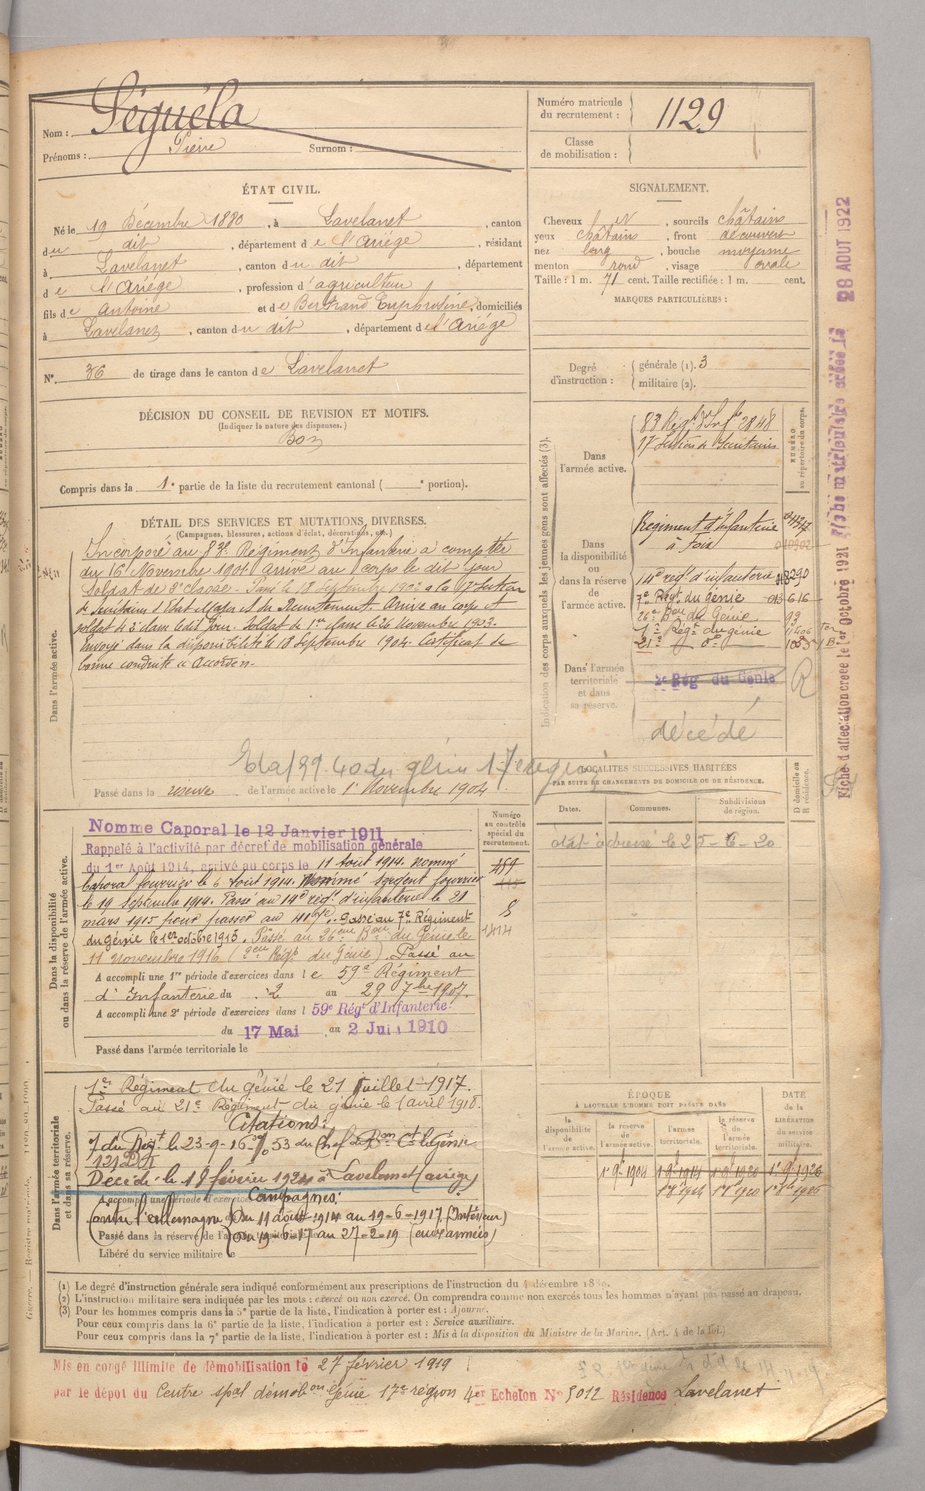 Nom : Séguéla
Prénoms : Pierre Surnom :
Numéro matricule du recrutement : 1129
Classe de mobilisation :
ÉTAT CIVIL.
Né le 19 Décembre 1880, à Lavelanet, canton
du dit, département de l'Ariège, résidant
à Lavelanet, canton du dit, département
de l'Ariège, profession d'agriculteur
fils de Antoine et de Bertrand Euphrosine, domiciliés
à Lavelanet, canton du dit, département de l'Ariége
N° 36 de tirage dans le canton de Lavelanet
SIGNALEMENT.
Cheveux ch N, sourcils châtains
yeux châtains, front découvert
nez long, bouche moyenne
menton rond, visage ovale
Taille : 1 m. 71 cent. Taille rectifiée : 1 m. cent.
MARQUES PARTICULIÈRES :
Degré d'instruction : générale (1). 3
militaire (2).
DÉCISION DU CONSEIL DE REVISION ET MOTIFS.
(Indiquer la nature des dispenses.)
Bon
Compris dans la 1e partie de la liste du recrutement cantonal ( e portion).
DÉTAIL DES SERVICES ET MUTATIONS DIVERSES.
(Campagnes, blessures, actions d'éclat, décorations, etc.)
Dans l'armée active.
Incorporé au 83e Régiment d'Infanterie à compter
du 16 Novembre 1901 arrivé au corps le dit jour
Soldat de 2e classe. Passé le 18 Septembre 1902 à la 17e Section
de Secrétaires d'Etat Major et du Recrutement. Arrivé au corps et
soldat de 2e classe le dit jour. Soldat de 1re classe le 26 Novembre 1903.
Envoyé dans la disponibilité le 18 Septembre 1904. Certificat de
bonne conduite "Accordé".
Passé dans la réserve de l'armée active le 1r Novembre 1904
Indication des corps auxquels les jeunes gens sont affectés (3).
NUMÉRO au répertoire du corps.
Dans l'armée active.
83 Régt d'Infie 2848
17e Section de Secrétaires
Dans la disponibilité ou dans la réserve de l'armée active.
Régiment d'infanterie
à Foix
14e reg' d'infanterie
7e Régt du génie 616
26e Bon de Génie 93
1er Régt du génie
21e do
Dans l'armée territoriale et dans sa réserve.
2e Rég. du Génie
R
décédé
LOCALITÉS SUCCESSIVES HABITÉES
PAR SUITE DE CHANGEMENTS DE DOMICILE OU DE RÉSIDENCE.
Dates. Communes. Subdivisions de région. D domicile ou R résidence.
état adressé le 25-6-20
Fiche d'affectation créée le 1er Octobre 1931
Fiche matriculaire créée le 28 AOUT 1922
Numéro au contrôle spécial du recrutement.
Dans la disponibilité ou dans la réserve de l'armée active.
Nommé Caporal le 12 Janvier 1911
Rappelé à l'activité par décret de mobilisation générale
du 1er Août 1914, arrivé au corps le 11 août 1914. nommé
Caporal fourrier le 6 Aout 1914. Nommé sergent fourrier
le 19 Septembre 1914. Passé au 14e régt d'infanterie le 21
mars 1915 pour passer au . Passé au 7e Régiment
du génie le 1er octobre 1915. Passé au 26ème Bon du Génie le
11 novembre 1916 ( Régt du Génie). Passé au
A accompli une 1re période d'exercices dans le 59e Régiment
d'Infanterie du 2 au 29 7bre 1907.
A accompli une 2e période d'exercices dans le 59e Régt d'Infanterie
du 17 Mai au 2 Juin 1910
Passé dans l'armée territoriale le
Dans l'armée territoriale et dans sa réserve.
1er Régiment du génie le 21 juillet 1917.
Passé au 21e Régiment du génie le 1 avril 1918.
Citations:
du Régt le 23-9-16 No 53 du Chef de Bon Ct le Génie
121 D.I
Décédé le 18 février 1924 à Lavelanet (ariège)
A accompli une période d'exercices
Campagnes:
Contre l'Allemagne Du 11 août 1914 au 19-6-1917 (Intérieur)
Passé dans la réserve de l'armée territoriale le
Du 19-6-17 au 27-2-19 (aux armées)
Libéré du service militaire le
ÉPOQUE
À LAQUELLE L'HOMME DOIT PASSER DANS
la disponibilité de l'armée active. la réserve de l'armée active. l'armée territoriale. la réserve de l'armée territoriale. DATE de la LIBÉRATION du service militaire.
(1) Le degré d'instruction générale sera indiqué conformément aux prescriptions de l'instruction du 4 décembre 1889.
(2) L'instruction militaire sera indiquée par les mots : exercé ou non exercé. On comprendra comme non exercés tous les hommes n'ayant pas passé au drapeau.
(3) Pour les hommes compris dans la 5e partie de la liste, l'indication à porter est : Ajourné.
Pour ceux compris dans la 6e partie de la liste, l'indication à porter est : Service auxiliaire.
Pour ceux compris dans la 7e partie de la liste, l'indication à porter est : Mis à la disposition du Ministre de la Marine. (Art. 4 de la loi.)
Mis en congé illimité de démobilisation le 27 février 1919
par le dépôt du Centre spal démobon Génie 17e région 4er Echelon No 5012 Résidence Lavelanet